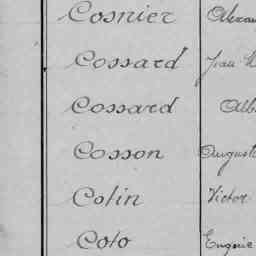 Cosnier Alexan
Cossard Jean
Cossard Alb
Cosson Auguste
Cotin Victor
Coto Eugénie